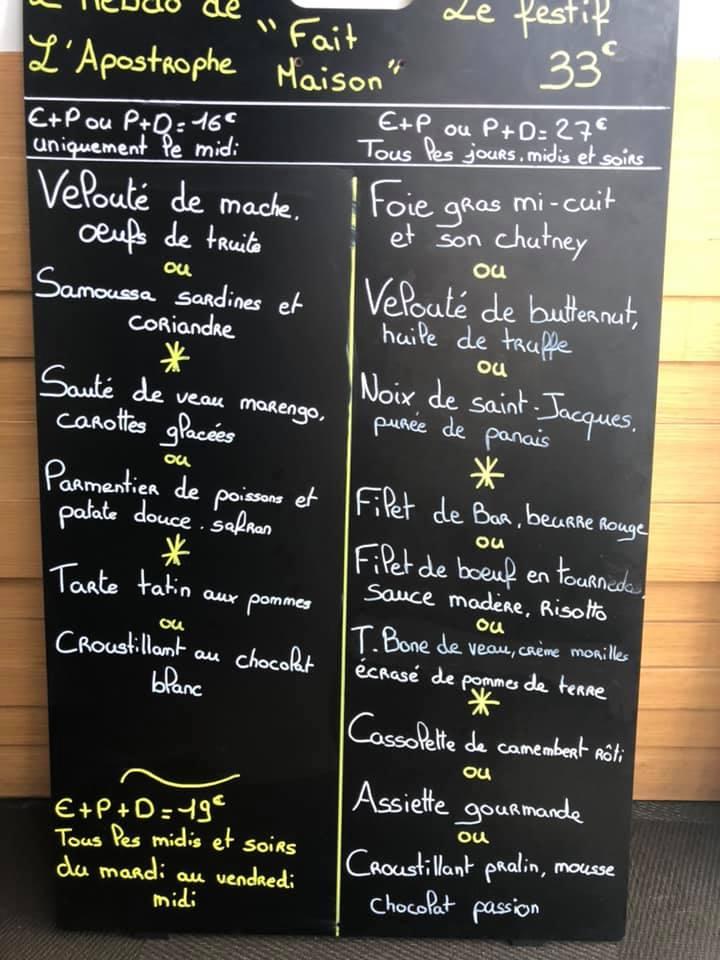 L'hebdo de
L'Apostrophe
"Fait
Maison"
Le festif
33€
E+P ou P+D = 16€
uniquement le midi
Velouté de mache,
oeufs de truite
ou
Samoussa sardines et
coriandre
*
Sauté de veau marengo,
carottes glacées
ou
Parmentier de poissons et
patate douce. safran
*
Tarte tatin aux pommes
ou
Croustillant au chocolat
blanc
E+P+D = 19€
Tous les midis et soirs
du mardi au vendredi
midi
E+P ou P+D = 27€
Tous les jours. midis et soirs
Foie gras mi-cuit
et son chutney
ou
Velouté de butternut,
huile de truffe
ou
Noix de saint-Jacques.
purée de panais
*
Filet de Bar, beurre rouge
ou
Filet de boeuf en tournedos
sauce madère, risotto
ou
T.Bone de veau, crème morilles
écrasé de pommes de terre
*
Cassolette de camembert rôti
ou
Assiette gourmande
ou
Croustillant pralin, mousse
chocolat passion